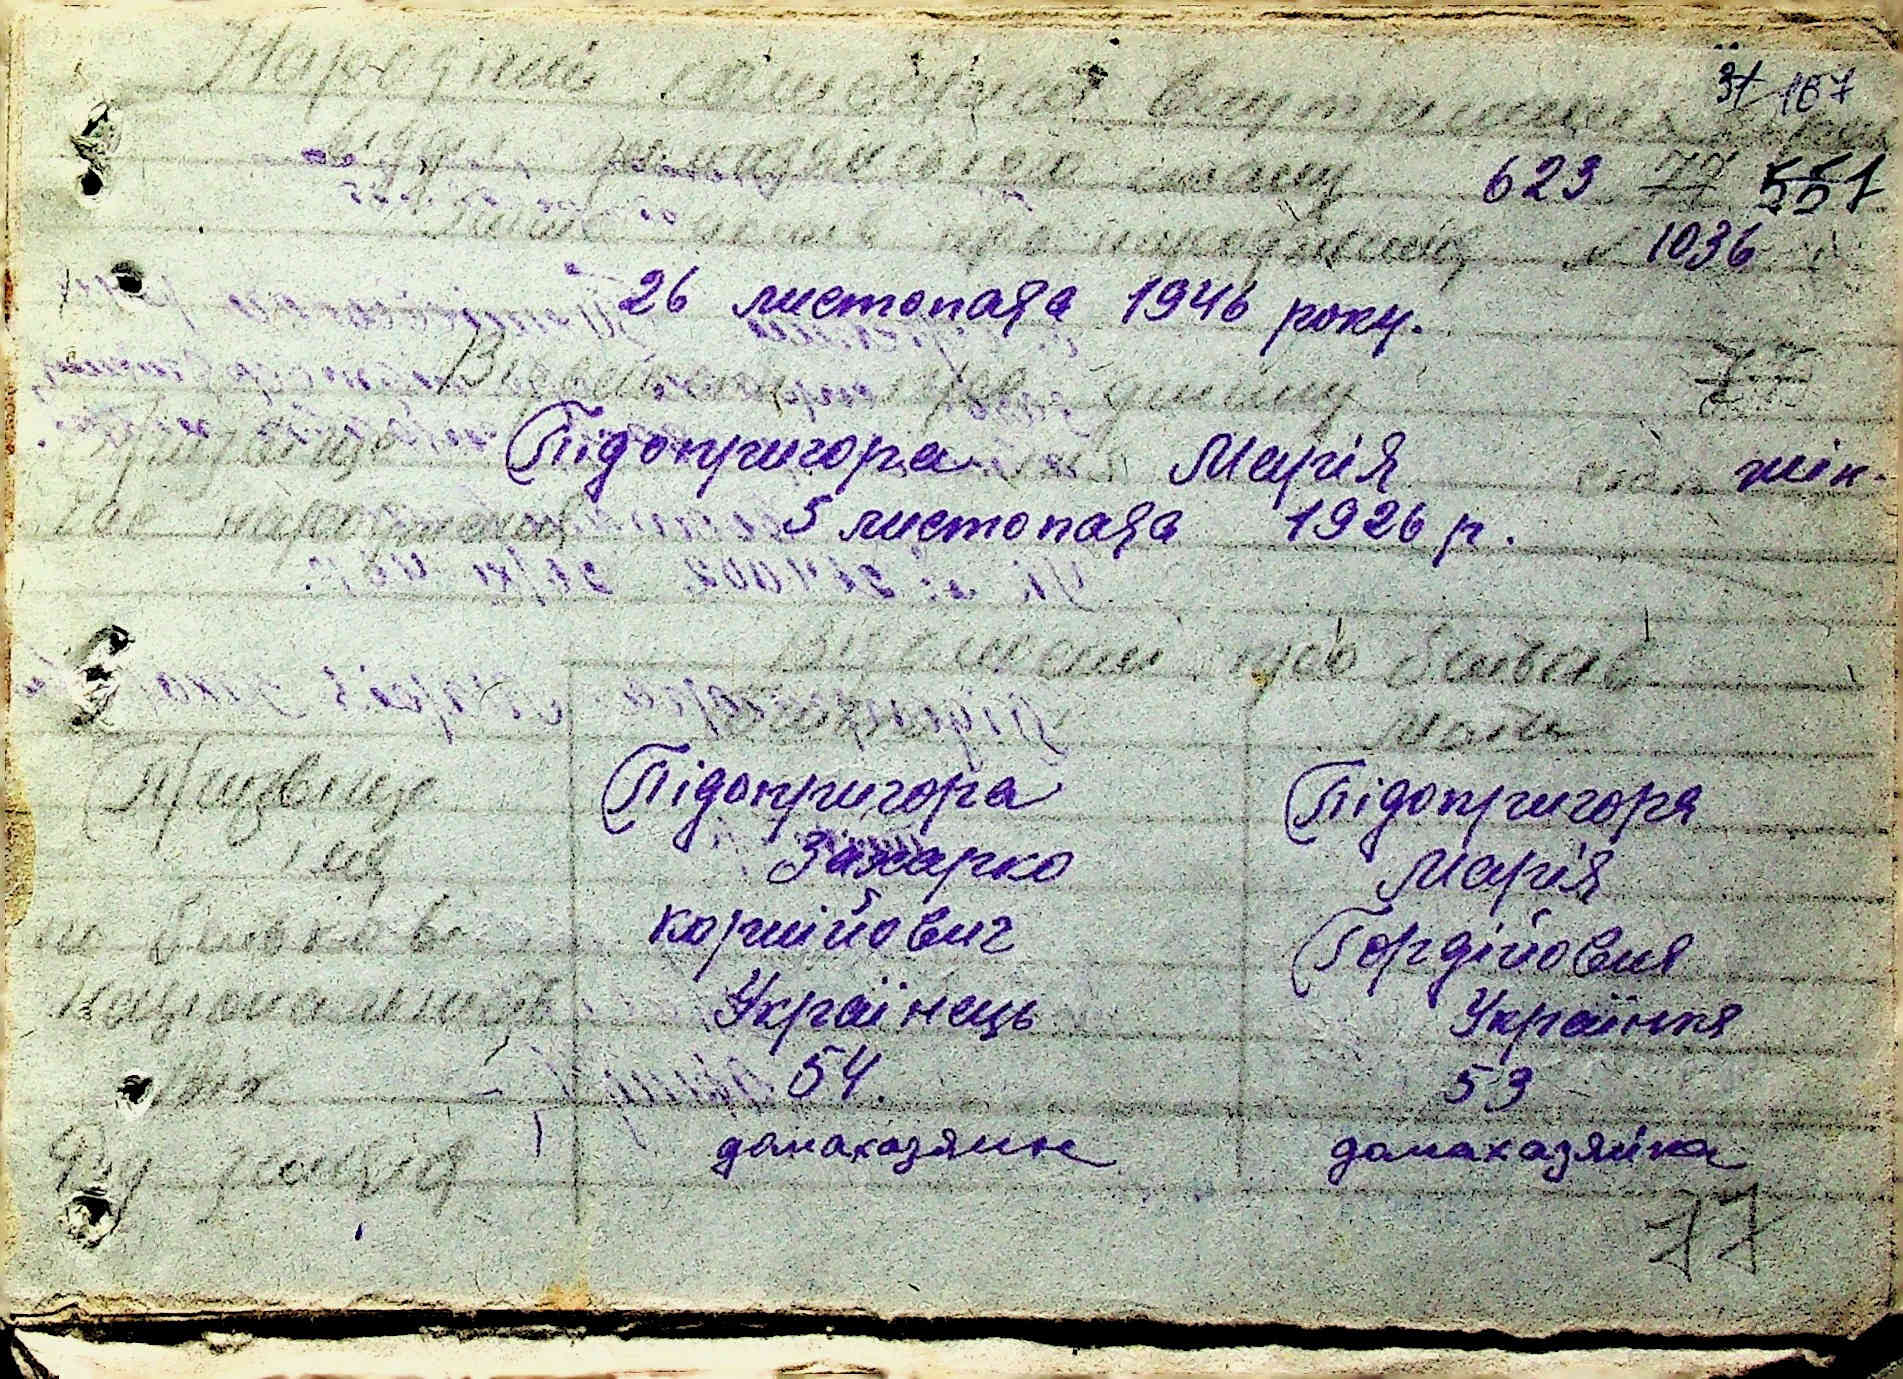 31 167
Народний комісаріат внутрішніх справ
відділ громадянського стану 623 77 551
Запис актів про народження № 1036
26 листопада 1946 року.
Відомості про дитину 77
Прізвище Підопригора Марія стать жін.
Час народження 5 листопада 1926 р.
Відомості про батьків
мати
Прізвище Підопригора Підопригора
імя Захарко Марія
по батькові Корнійович Гордійовна
національність Українець Українка
Вік 54. 53
Рід занять домахазяин домахазяйка
77